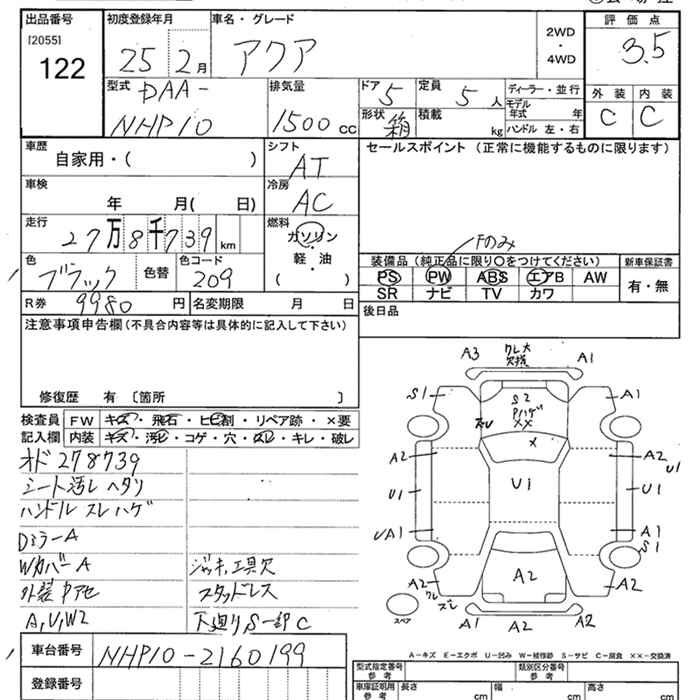 出品番号
[2055]
122
初度登録年月
25 2月
車名・グレード
アクア
2WD
・
4WD
評価点
3.5
外装 内装
C C
型式
DAA-
NHP10
排気量
1500 cc
ドア 5
形状 箱
定員 5 人
積載 kg
ディーラー・並行
モデル年式 年
ハンドル 左・右
車歴
自家用・( )
シフト
AT
車検
年 月( 日)
冷房
AC
走行
27万8千739 km
燃料
ガソリン
・
軽・油
( )
色
ブラック
色替
色コード
209
R券 9980 円
名変期限 月 日
セールスポイント (正常に機能するものに限ります)
Fのみ
装備品(純正品に限り○をつけてください)
PS PW ABS エアB AW
SR ナビ TV カワ
新車保証書
有・無
後日品
注意事項申告欄(不具合内容等は具体的に記入して下さい)
修復歴 有 〔箇所 〕
検査員記入欄
FW キズ・飛石・ヒビ割・リペア跡・×要
内装 キズ・汚レ・コゲ・穴・スレ・キレ・破レ
オド278739
シート汚レ ヘタリ
ハンドル スレ ハゲ
DミラーA
WカバーA
外装Pアセ
A,U,W2
ジャッキ,工具欠
スタッドレス
下廻りS一部C
A3
ワレ大
欠損
A1
S1
S2
Pハゲ
XX
ズレ
A1
X
A2
A2
U1
U1
U1
U1
UA1
A1
S1
A2
ワレ
ズレ
A2
A2
スペア
A1
A2
A2
A-キズ E-エクボ U-凹み W-補修跡 S-サビ C-腐食 ××-交換済
車台番号
NHP10-2160199
登録番号
型式指定番号
参考
類別区分番号
参考
車庫証明用
参考
長さ cm
幅 cm
高さ cm